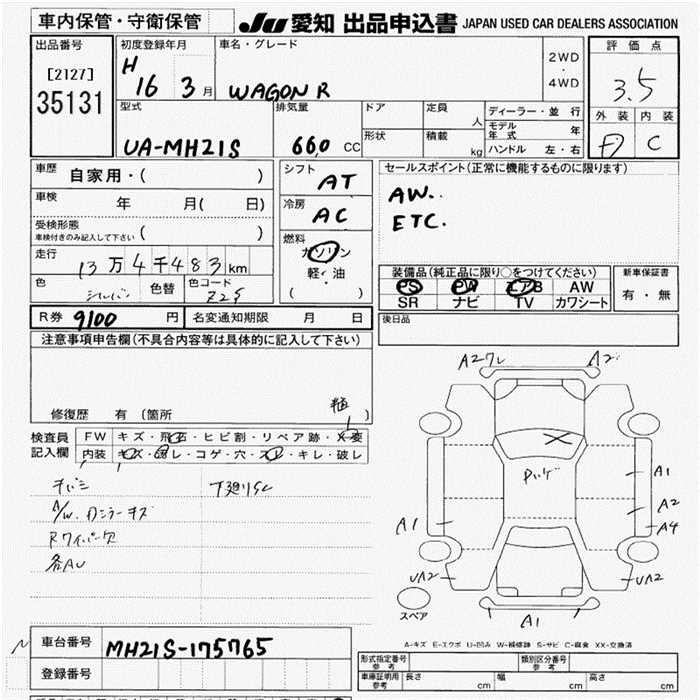 車内保管・守衛保管
JU 愛知 出品申込書 JAPAN USED CAR DEALERS ASSOCIATION
出品番号
[2127]
35131
初度登録年月
H 16 3 月
車名・グレード
WAGON R
2WD
・
4WD
評価点
3.5
外装 内装
C
型式
UA-MH21S
排気量
660 CC
ドア
定員 人
形状
積載 kg
ディーラー・並行
モデル年式 年
ハンドル 左・右
車歴
自家用・( )
車検 年 月( 日)
受検形態
車検付きのみ記入して下さい ( )
走行
13万4千483km
色 シルバー 色替 色コード Z2S
シフト
AT
冷房
AC
燃料
ガソリン
軽・油
( )
セールスポイント(正常に機能するものに限ります)
AW..
ETC.
装備品(純正品に限り○をつけてください)
PS PW エアB AW
SR ナビ TV カワシート
新車保証書
有・無
後日品
R券 9100 円 名変通知期限 月 日
注意事項申告欄(不具合内容等は具体的に記入して下さい)
修復歴 有 (箇所
検査員
記入欄
FW キズ・飛石・ヒビ割・リペア跡・X変
内装 キズ・汚レ・コゲ・穴・スレ・キレ・破レ
A/W. ガンコーキズ
下廻りSC
Rワイパー欠
各AU
A2ワレ
A1
A2
A4
A1
UA2
UA2
A1
スペア
A-キズ E-エクボ U-凹み W-補修跡 S-サビ C-腐食 XX-交換済
車台番号 MH21S-175765
登録番号
形式指定番号
参考
類別区分番号
参考
車庫証明用
参考
長さ cm 幅 cm 高さ cm